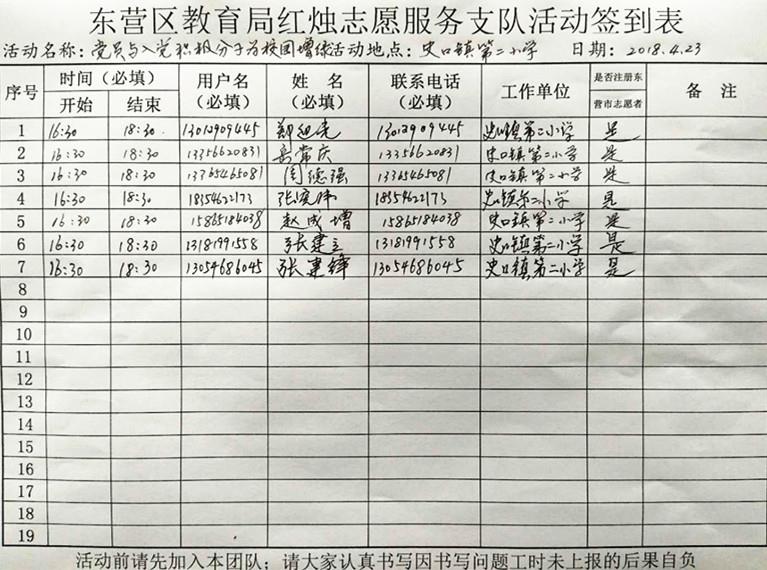 东营区教育局红烛志愿服务支队活动签到表
活动名称：党员与入党积极分子为校园增绿活动地点：史口镇第二小学 日期：2018.4.23
序号 时间（必填） 用户名（必填） 姓名（必填） 联系电话（必填） 工作单位 是否注册东营市志愿者 备注
开始 结束
1 16:30 18:30 13012909445 13012909445 史口镇第二小学 是
2 16:30 18:30 13356620831 岳常庆 13356620831 史口镇第二小学 是
3 16:30 18:30 13365465081 周德强 13365465081 史口镇第二小学 是
4 16:30 18:30 18354622173 张 伟 18354622173 史口镇第二小学 是
5 16:30 18:30 15865184038 赵成增 15865184038 史口镇第二小学 是
6 16:30 18:30 13181991558 张建立 13181991558 史口镇第二小学 是
7 16:30 18:30 13054686045 张建锋 13054686045 史口镇第二小学 是
8
9
10
11
12
13
14
15
16
17
18
19
活动前请先加入本团队；请大家认真书写因书写问题工时未上报的后果自负